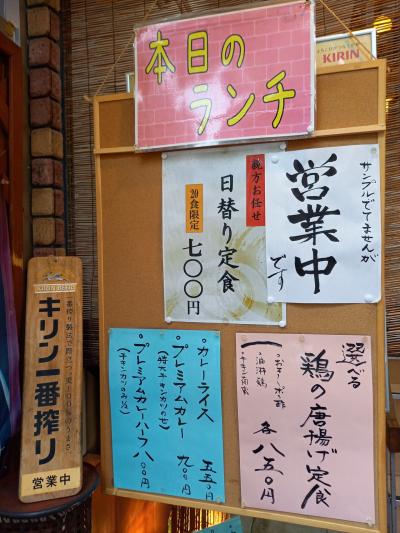 本日の
ランチ
KIRIN
親方お任せ
日替り定食
20食限定
七〇〇円
サンプルでてませんが
営業中
です
選べる
鶏の唐揚げ定食
・油淋鶏
・チキン南蛮
各 八五〇円
・カレーライス 五五〇円
・プレミアムカレー 九〇〇円
(特大チキンカツのせ)
・プレミアムカレーハーフ 八〇〇円
(チキンカツのみ½)
KIRIN BEER
一番搾り製法で麦のうまみ100%のうまさ。
キリン一番搾り
営業中